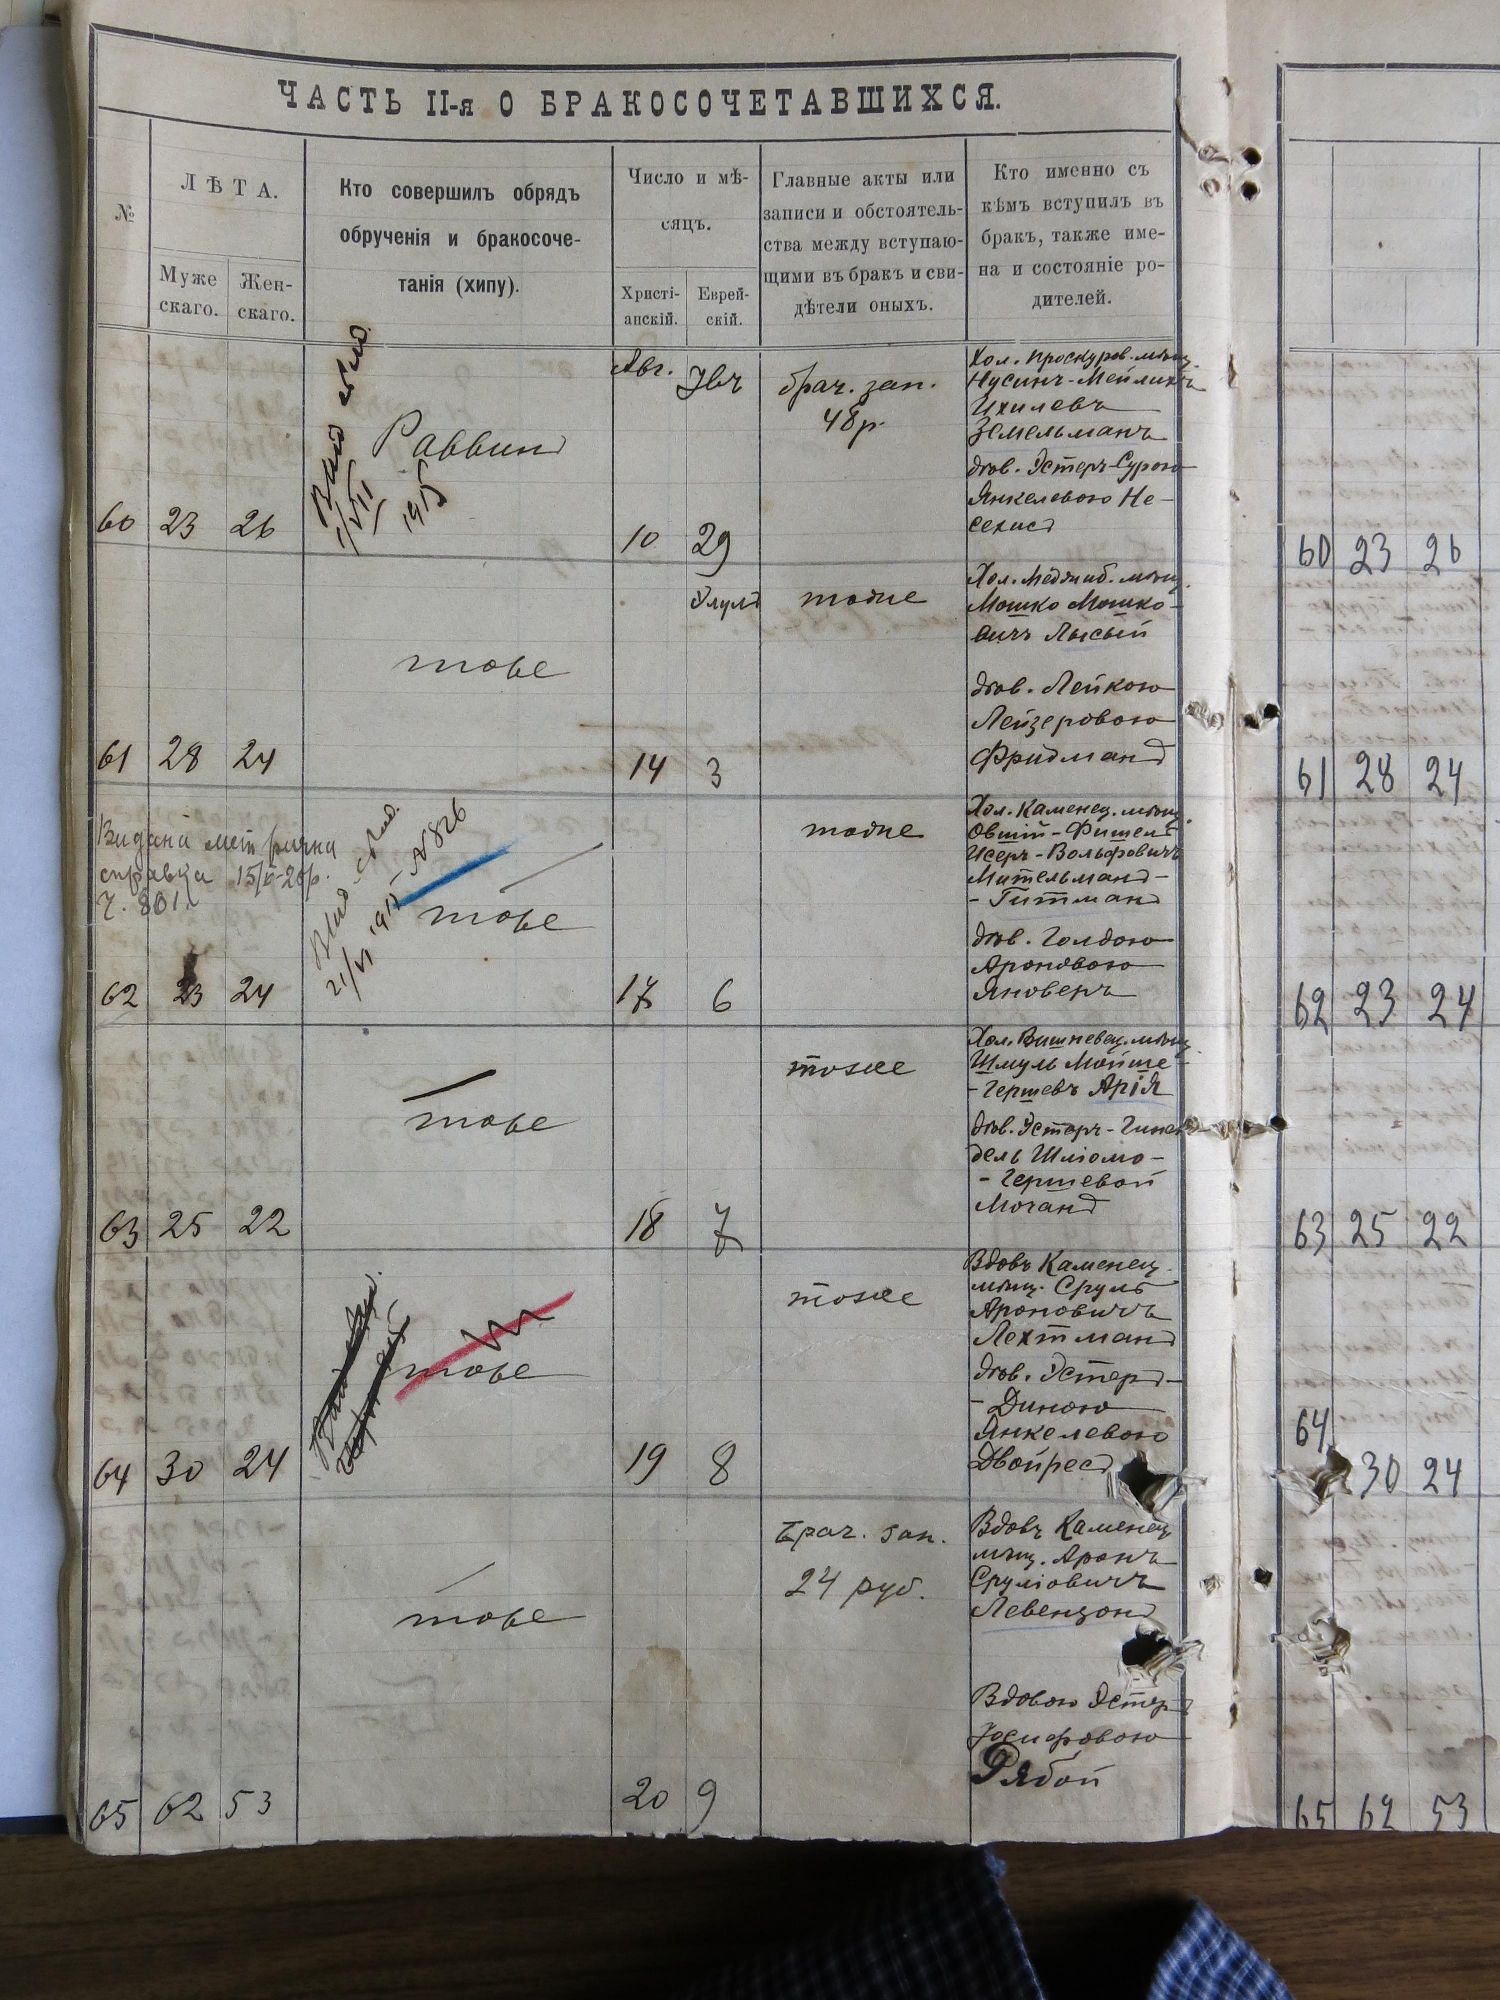 ЧАСТЬ II-я О БРАКОСОЧЕТАВШИХСЯ.
№
ЛѢТА.
Муже
скаго.
Жен-
скаго.
Кто совершилъ обрядъ
обрученія и бракосоче-
танія (хипу).
Число и мѣ-
сяцъ.
Христі-
анскій.
Еврей-
скій.
Главные акты или
записи и обстоятель-
ства между вступаю-
щими въ бракъ и сви-
дѣтели оныхъ.
Кто именно съ
кѣмъ вступилъ въ
бракъ, также име-
на и состояніе ро-
дителей.
60 23 26
Раввинъ
1/VII
1915
Авг.
10
29
брач. зап.
48 р.
Хол. Проскуров. мѣщ.
Нусинъ-Мейлихъ
Ихилевъ
Земельманъ
дѣв. Эстеръ-Сурою
Янкелевою Не-
сехисъ
61 28 24
тоже
14
Элулъ
3
тоже
Хол. Меджиб. мѣщ.
Мошко Мошко-
вичъ Лысый
дѣв. Лейкою
Лейзеровою
Фридманъ
Видана метрична
справка 15/II-26р.
Ч. 801.
62 23 24
21/VI 1915 - №826
тоже
17
6
тоже
Хол. Каменец. мѣщ.
Овшій-Фишель
Исеръ-Вольфовичъ
Мительманъ-
-Гитманъ
дѣв. Голдою
Ароновою
Яноверъ
63 25 22
тоже
18
7
тоже
Хол. Вишневец. мѣщ.
Шмуль Мойше-
-Гершевъ Арія
дѣв. Эстеръ-Гин
дель Шліомо-
-Гершевой
Моганъ
64 30 24
тоже
19
8
тоже
Вдовъ Каменец.
мѣщ. Сруль
Ароновичъ
Лехтманъ
дѣв. Эстеръ-
-Диною
Янкелевою
Двойресъ
65 62 53
тоже
20
9
Брач. зап.
24 руб.
Вдовъ Каменец
мѣщ. Аронъ
Сруліовичъ
Левензонъ
Вдовою Эстеръ
Іосифовою
Рябой
60 23 26
61 28 24
62 23 24
63 25 22
64
30 24
65 62 53